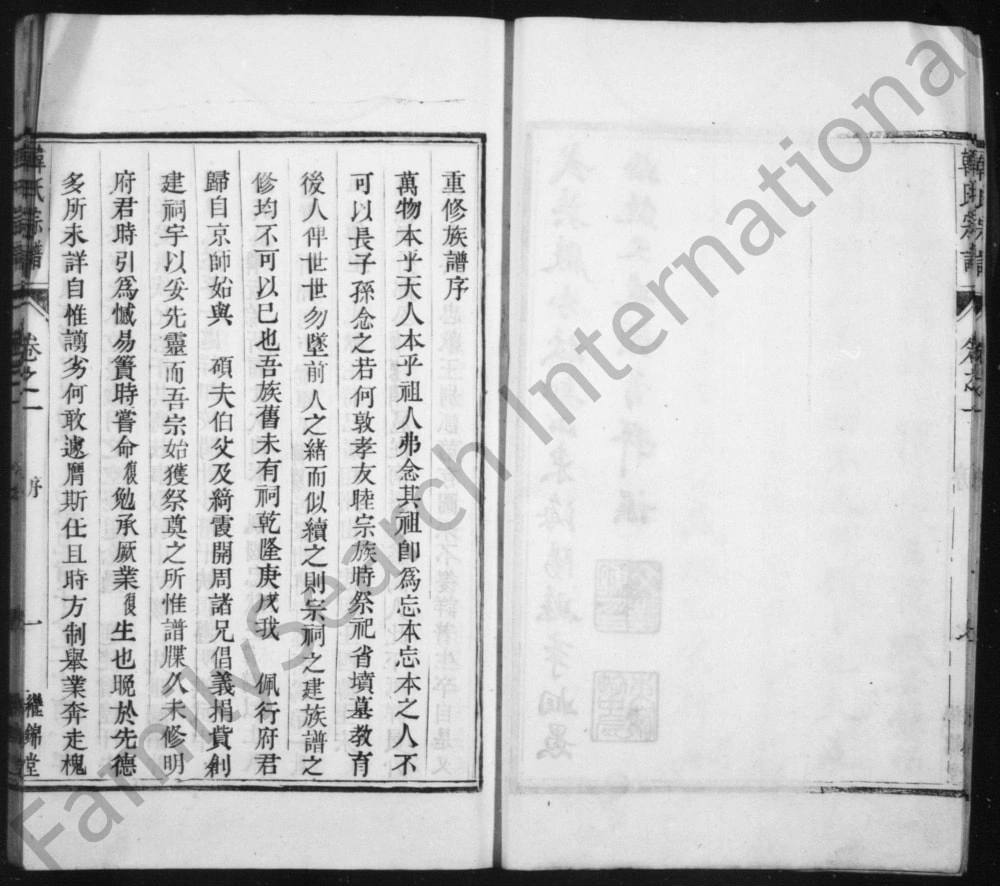 韓氏宗譜
重修族譜序
萬物本乎天人本乎祖人弗念其祖卽爲忘本忘本之人不
可以長子孫念之若何敦孝友睦宗族時祭祀省墳墓教育
後人俾世世勿墜前人之緒而似續之則宗祠之建族譜之
修均不可以已也吾族舊未有祠乾隆庚戌我　佩行府君
歸自京師始與　碩夫伯父及綺霞開周諸兄倡義捐貲創
建祠宇以妥先靈而吾宗始獲祭奠之所惟譜牒久未修明
府君時引爲憾易簀時嘗命復勉承厥業復生也晚於先德
多所未詳自惟謭劣何敢遽膺斯仕且時方制舉業奔走槐
韓氏宗譜
卷之一
序
一
繼錦堂
FamilySearch International